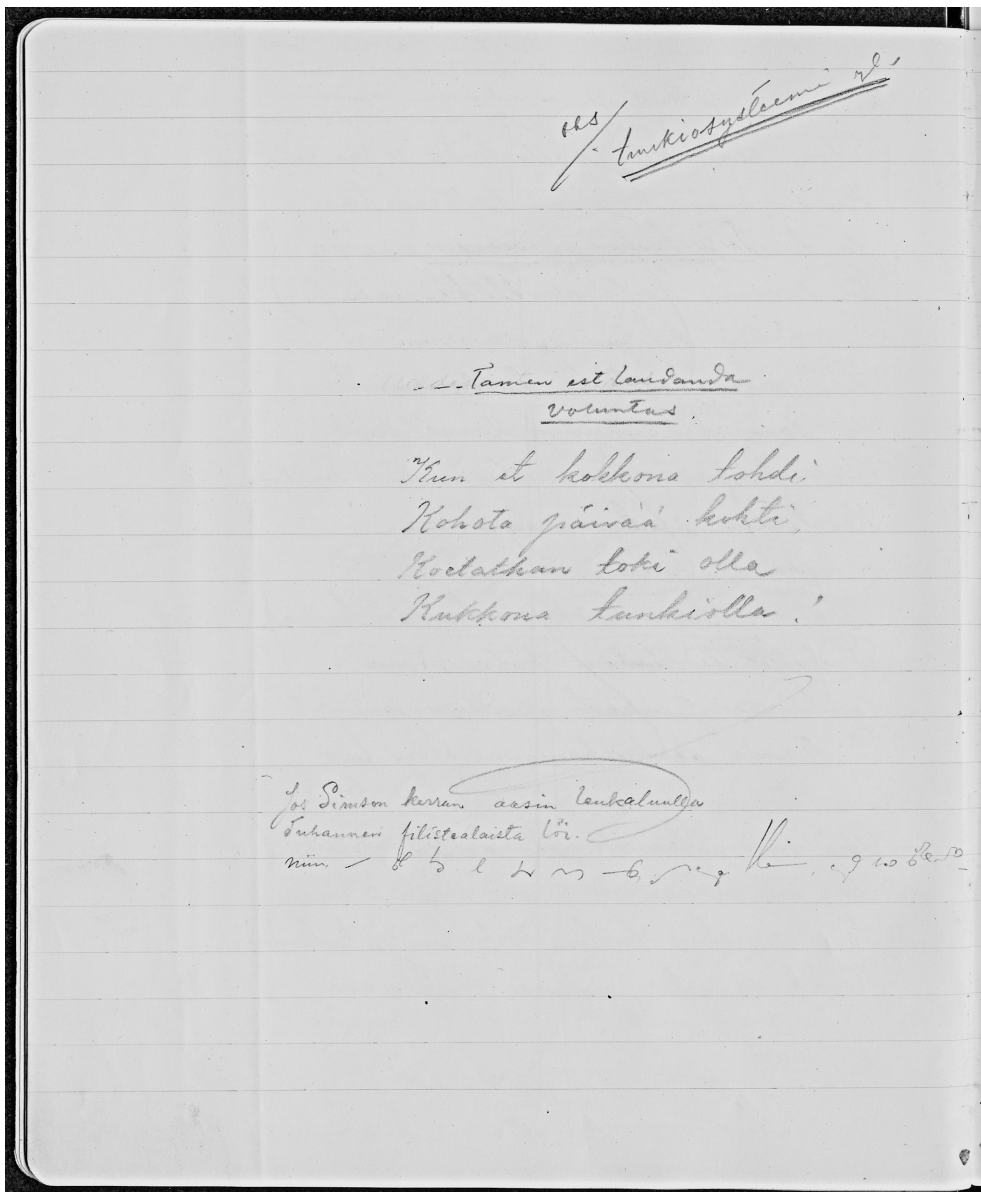 tunkiosysteemi
- - - Tamen est laudanda
voluntas.
Kun et kokkona tohdi
Kohota päivää kohti,
Koetathan toki olla
Kukkona tunkiolla!
Jos Simson kerran aasin leukaluulla
Tuhannen filistealaista löi.
niin –